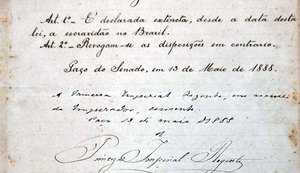 Art. 1º É declarada extincta, desde a data desta
lei, a escravidão no Brazil.
Art. 2º Revogam-se as disposições em contrario.
Paço do Senado, em 13 de Maio de 1888.
A Princeza Imperial Regente, em nome
do Imperador, consente.
Paço 13 de maio de 1888
Princeza Imperial Regente